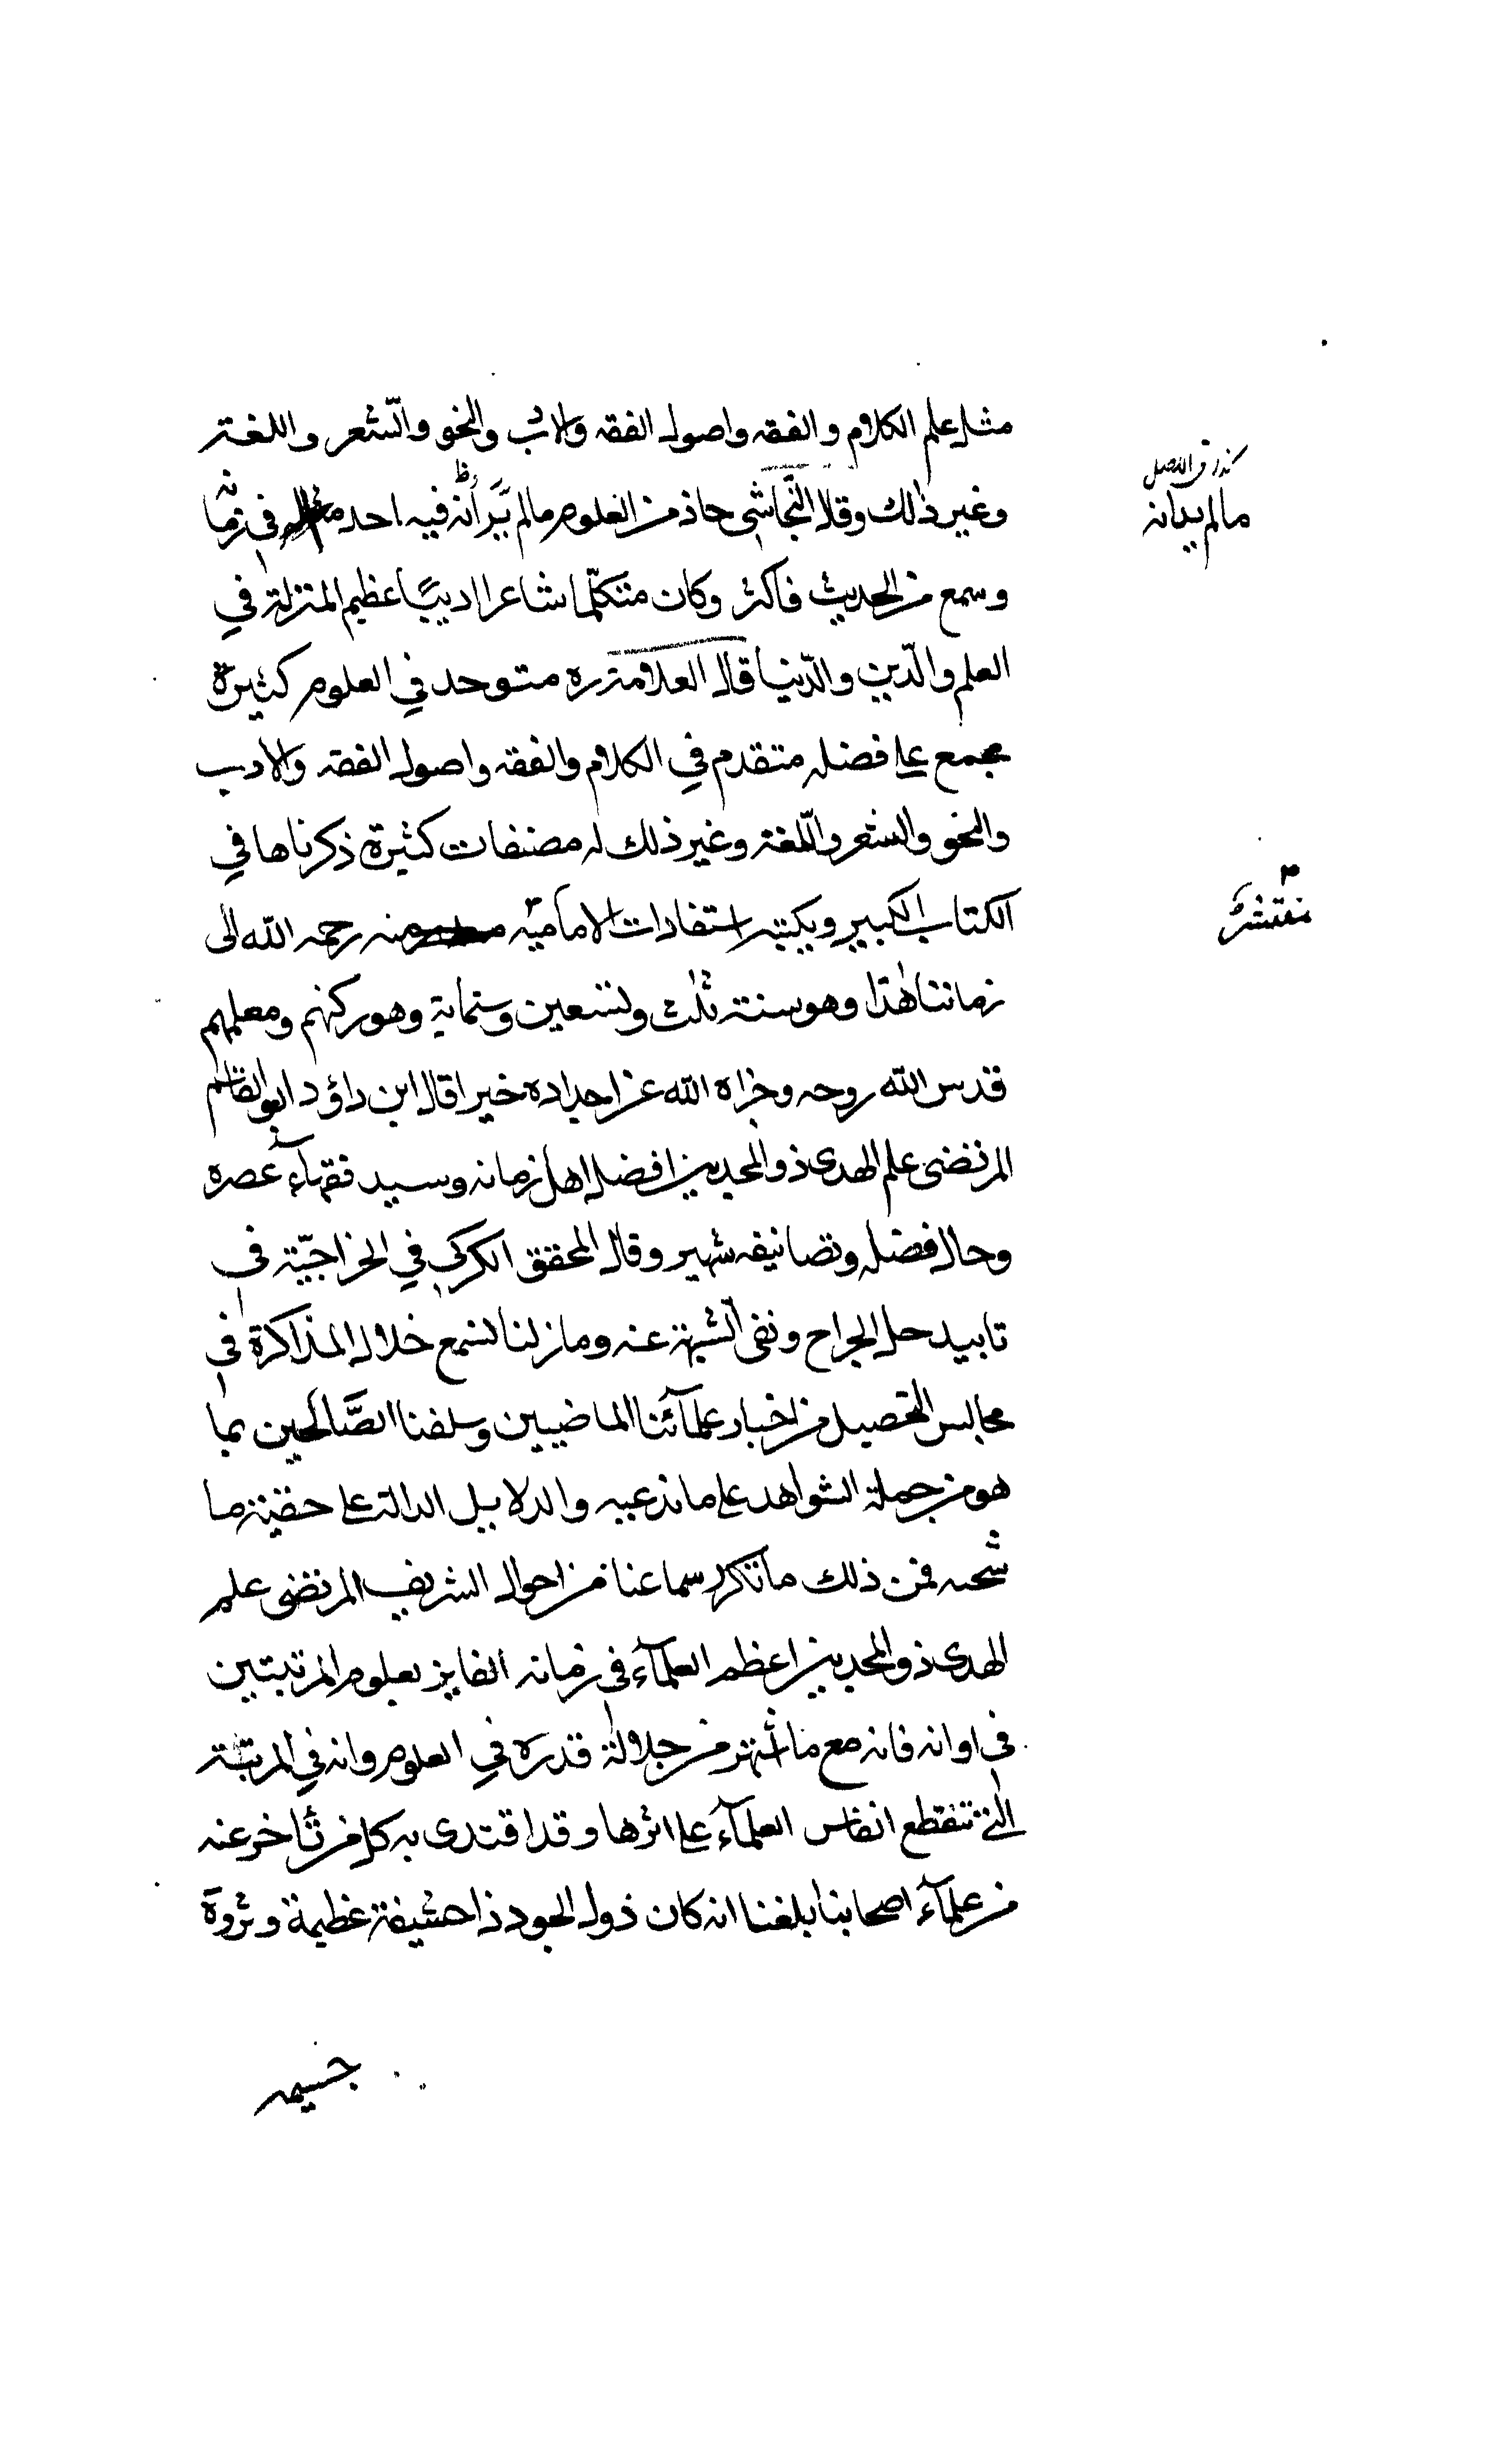 مثل علم الكلام والفقه واصول الفقه والادب والنحو والشعر واللغة
وغير ذلك وقال النجاشي حاذ من العلوم مالم يَرَ أنه فيه احد في زمانه
وسمع من الحديث فاكثر وكان متكلّما شاعرا اديبًا عظيم المنزلة في
العلم والدّين والدّنيا قال العلامة ره متوحد في العلوم كثيرة
مجمع على فضله متقدم في الكلام والفقه واصول الفقه والادب
والنحو والشعر واللّغة وغير ذلك له مصنفات كثيرة ذكرناها في
الكتاب الكبير وبكتبه استفادات الاماميّة منه رحمه الله الى
زماننا هٰذا وهو سنة ثلٰث وتسعين وستماية وهو ركنهم ومعلمهم
قدس الله روحه وجزاه الله عن اجداده خيرا قال ابن داؤد ابو القاسم
المرتضى علم الهدى ذو المجدين افضل اهل زمانه وسيد فقهآء عصره
وحال فضله وتصانيفه شهير وقال المحقق الكركي في الخراجيّة في
تاييد حل الخراج ونفى الشبهة عنه وما زلنا نسمع خلال المذاكرة في
مجالس التحصيل من اخبار علمآئنا الماضيين وسلفنا الصَّالحين بما
هو من جملة الشواهد على ما ندعيه والدلايل الدالة على حقية ما
فمن ذلك ما تكرر سماعنا من احوال الشريف المرتضى علم
الهدى ذو المجدين اعظم العلمآء في زمانه الفايز بعلوم المرتبتين
في اوانه فانه مع ما اشتهر من جلالة قدره في العلوم وانه في المرتبة
التي تنقطع انفاس العلمآء على اثرها وقد اقتدى به كل من تأخر عنه
من علمآء اصحابنا بلغنا انه كان ذول الجود ذا حشيفة عظيمة وثروة
جسيمه
كذا في الاصل
مالم يدانه